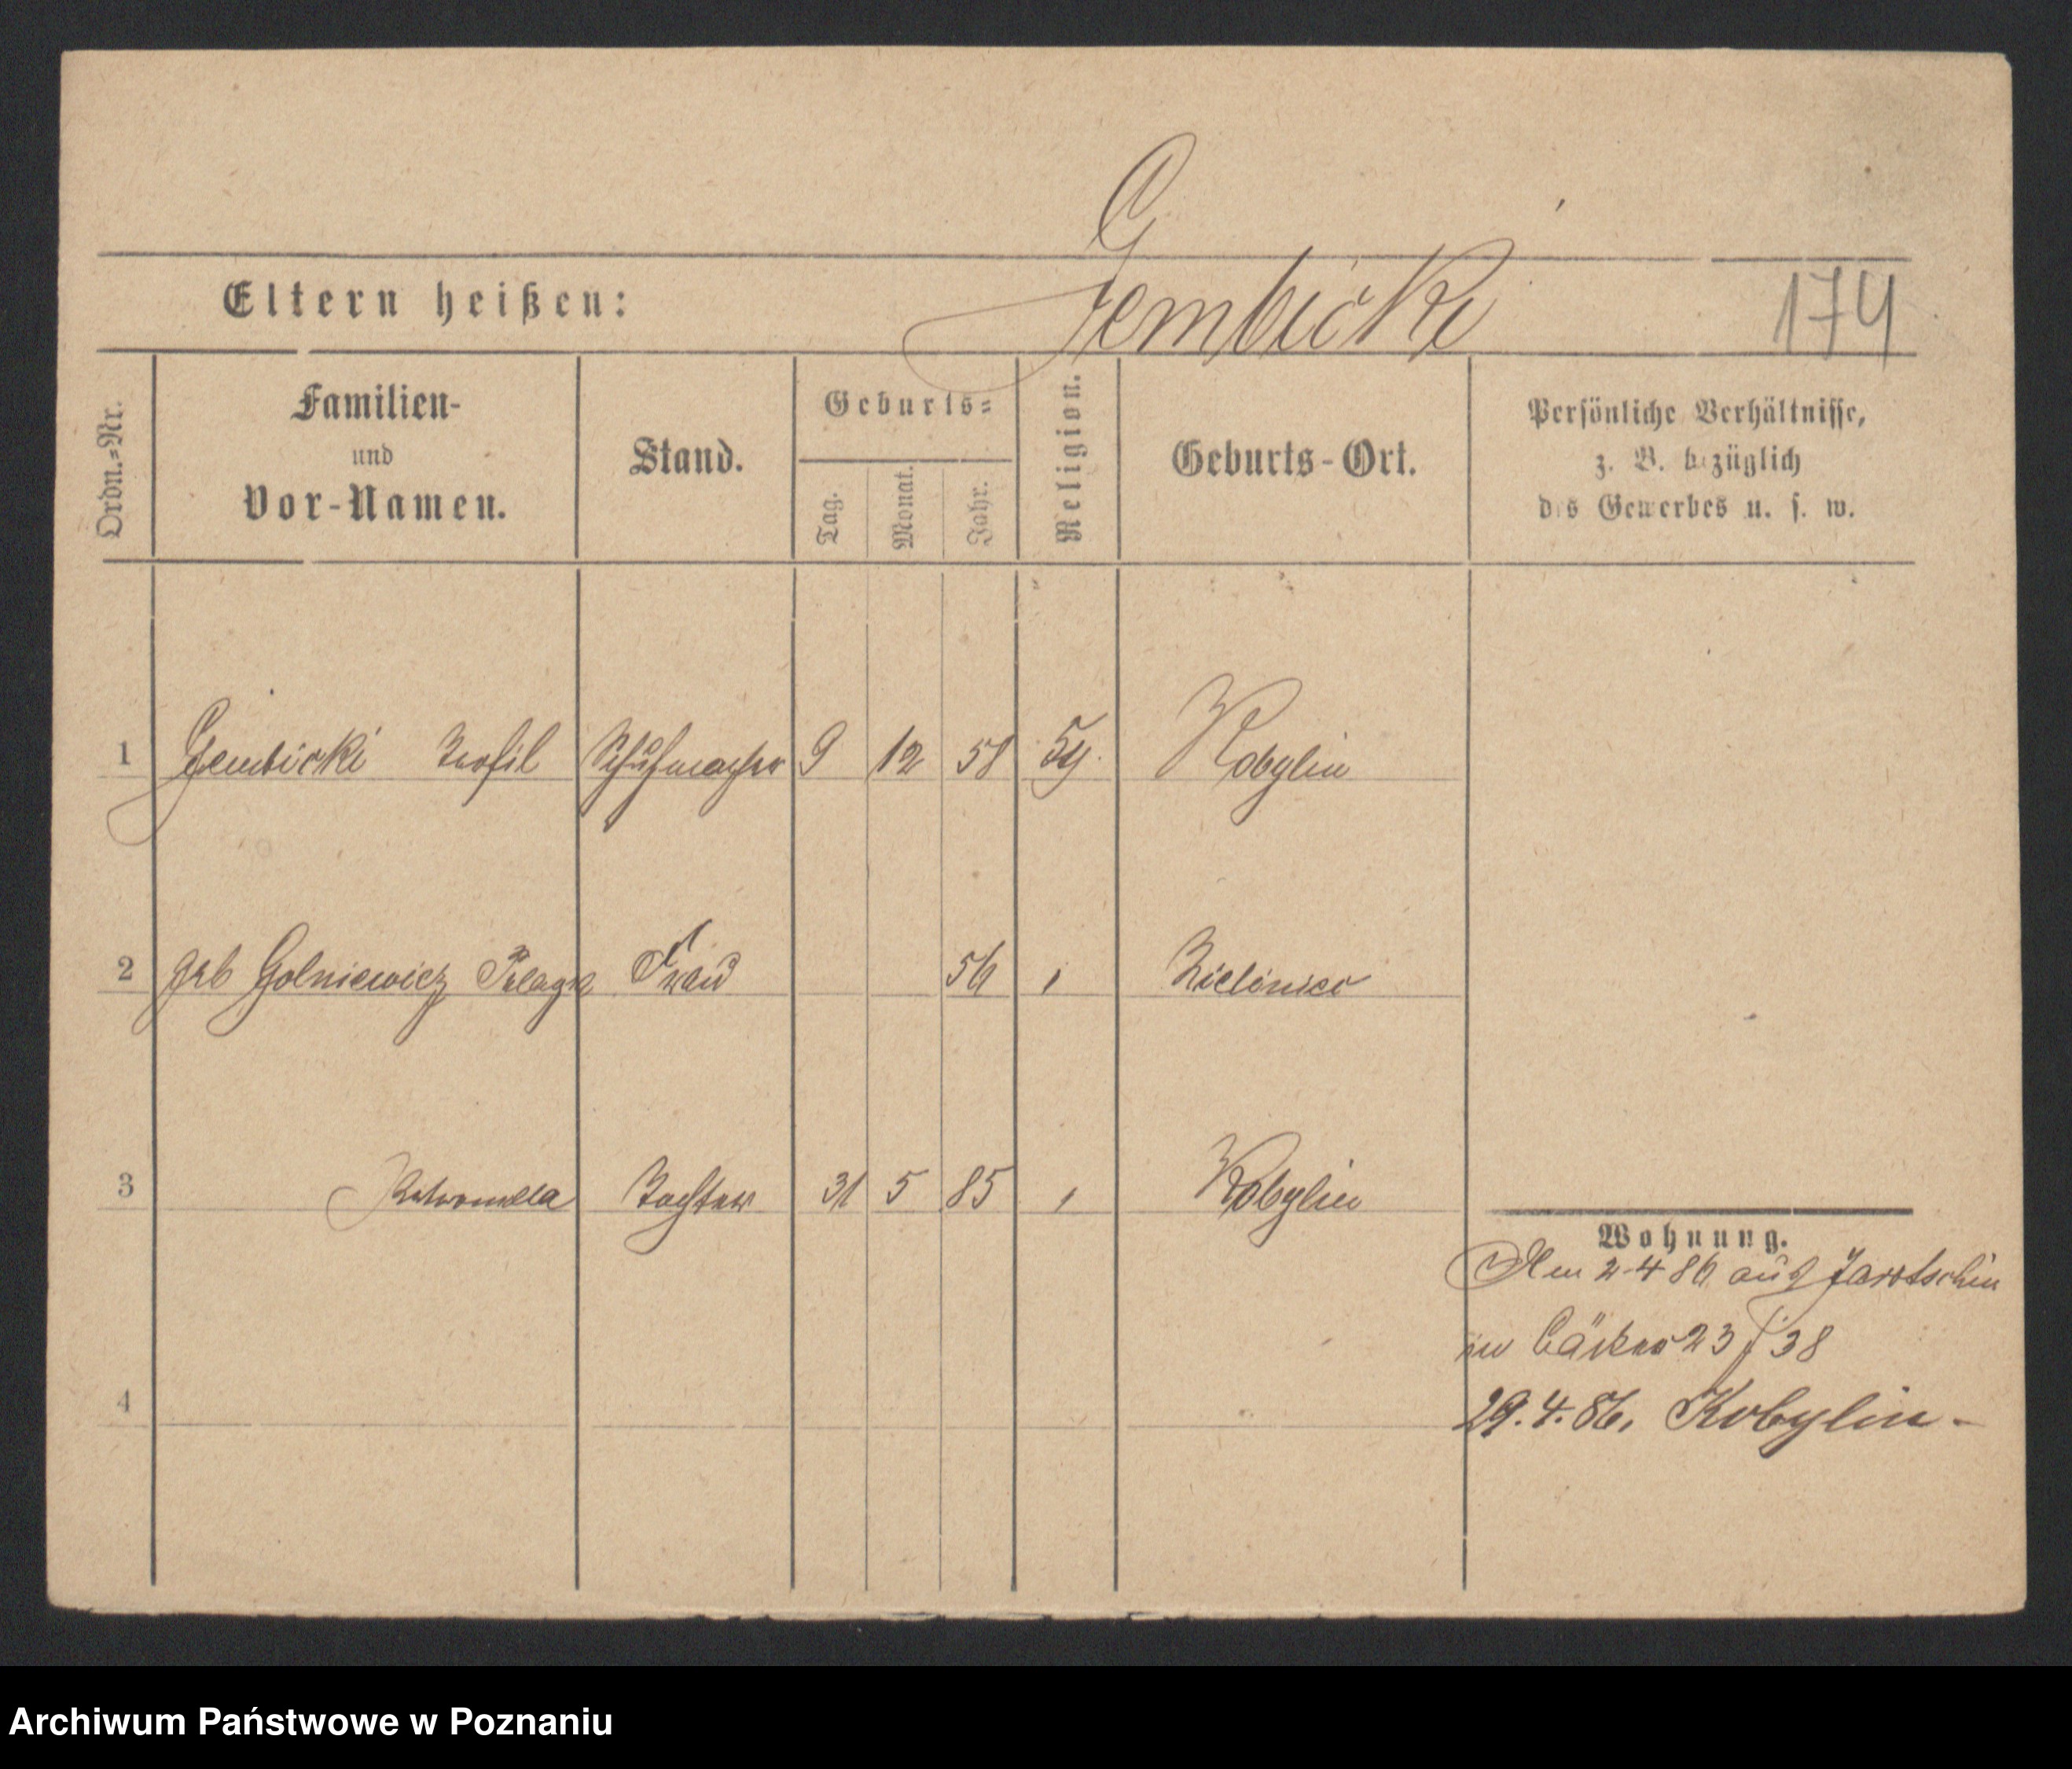 Eltern heißen: Gembicki 174
Ordn.=Nr. Familien- und Vor-Namen. Stand. Geburts= Tag. Monat. Jahr. Religion. Geburts-Ort. Persönliche Verhältnisse, z. B. bezüglich des Gewerbes u. s. w.
1 Gembicki Teofil Schuhmacher 9 12 58 Kobylin
2 geb Golniewicz Pelagia Frau 56 Zielonice
3 Petronella Tochter 31 5 85 Kobylin
Wohnung.
2-4 86 aus Jarotschin
23 / 38
4
29.4.86, Kobylin -
Archiwum Państwowe w Poznaniu